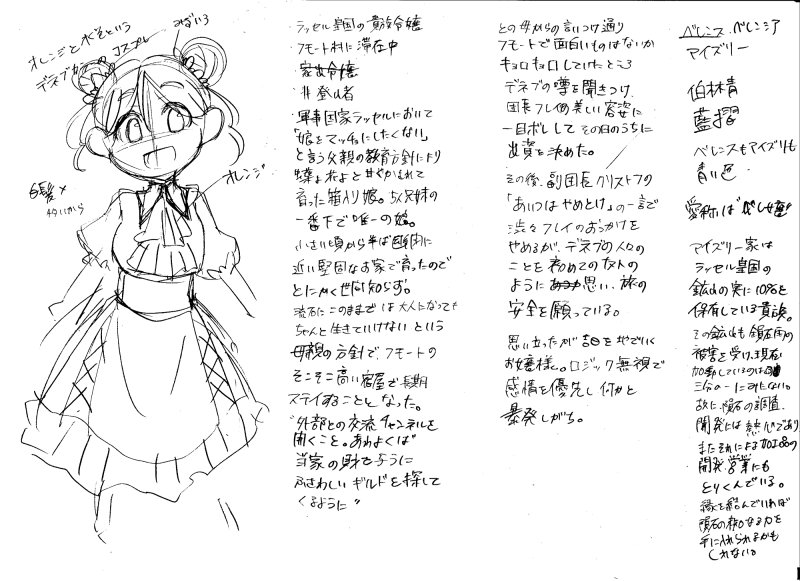 オレンジと水色という
コスプレ
みずいろ
オレンジ
白髪×
・ラッセル皇国の貴族令嬢
・フモート村に滞在中
・非登山者
・軍事国家ラッセルにおいて
「娘をマッチョにしたくない」
と言う父親の教育方針により
蝶よ花よと甘やかされて
育った箱入り娘。5人兄妹の
一番下で唯一の娘。
小さい頃から半ば
近い堅固なお家で育ったので
とにかく世間知らず。
流石にこのままでは大人になっても
ちゃんと生きていけないという
母親の方針でフモートの
そこそこ高い宿屋で長期
ステイすることとなった。
"外部との交流チャンネルを
開くこと。あわよくば
当家の財を与うに
ふさわしいギルドを探して
くるように"
との母からの言いつけ通り
フモートで面白いものはないか
キョロキョロしていたところ
デネブの噂を聞きつけ
団長フレイの美しい容姿に
一目ボレしてその日のうちに
出資を決めた。
その後、副団長クリストフの
「あいつはやめとけ」の一言で
渋々フレイのおっかけを
やめるが、デネブの人々の
ことを初めての友人の
ように思い、旅の
安全を願っている。
思い立ったが吉日を地でいく
お嬢様。ロジック無視で
感情を優先し何かと
暴発しがち。
ベレニス・ベレンシア
アイズリー
伯林青
藍摺
ベレニスもアイズリも
青い色
愛称は
アイズリー家は
ラッセル皇国の
鉱山の実に10%を
保有している貴族。
その鉱山も鎖国の
被害を受け、現在
稼動しているのは
三分の一にみたない。
故に、隕石の調査
開発には熱心であり
またそれによる加工品の
開発、営業にも
とりくんでいる。
縁を結んでいれば
隕石の称なる力を
手に入れられるかも
しれない。